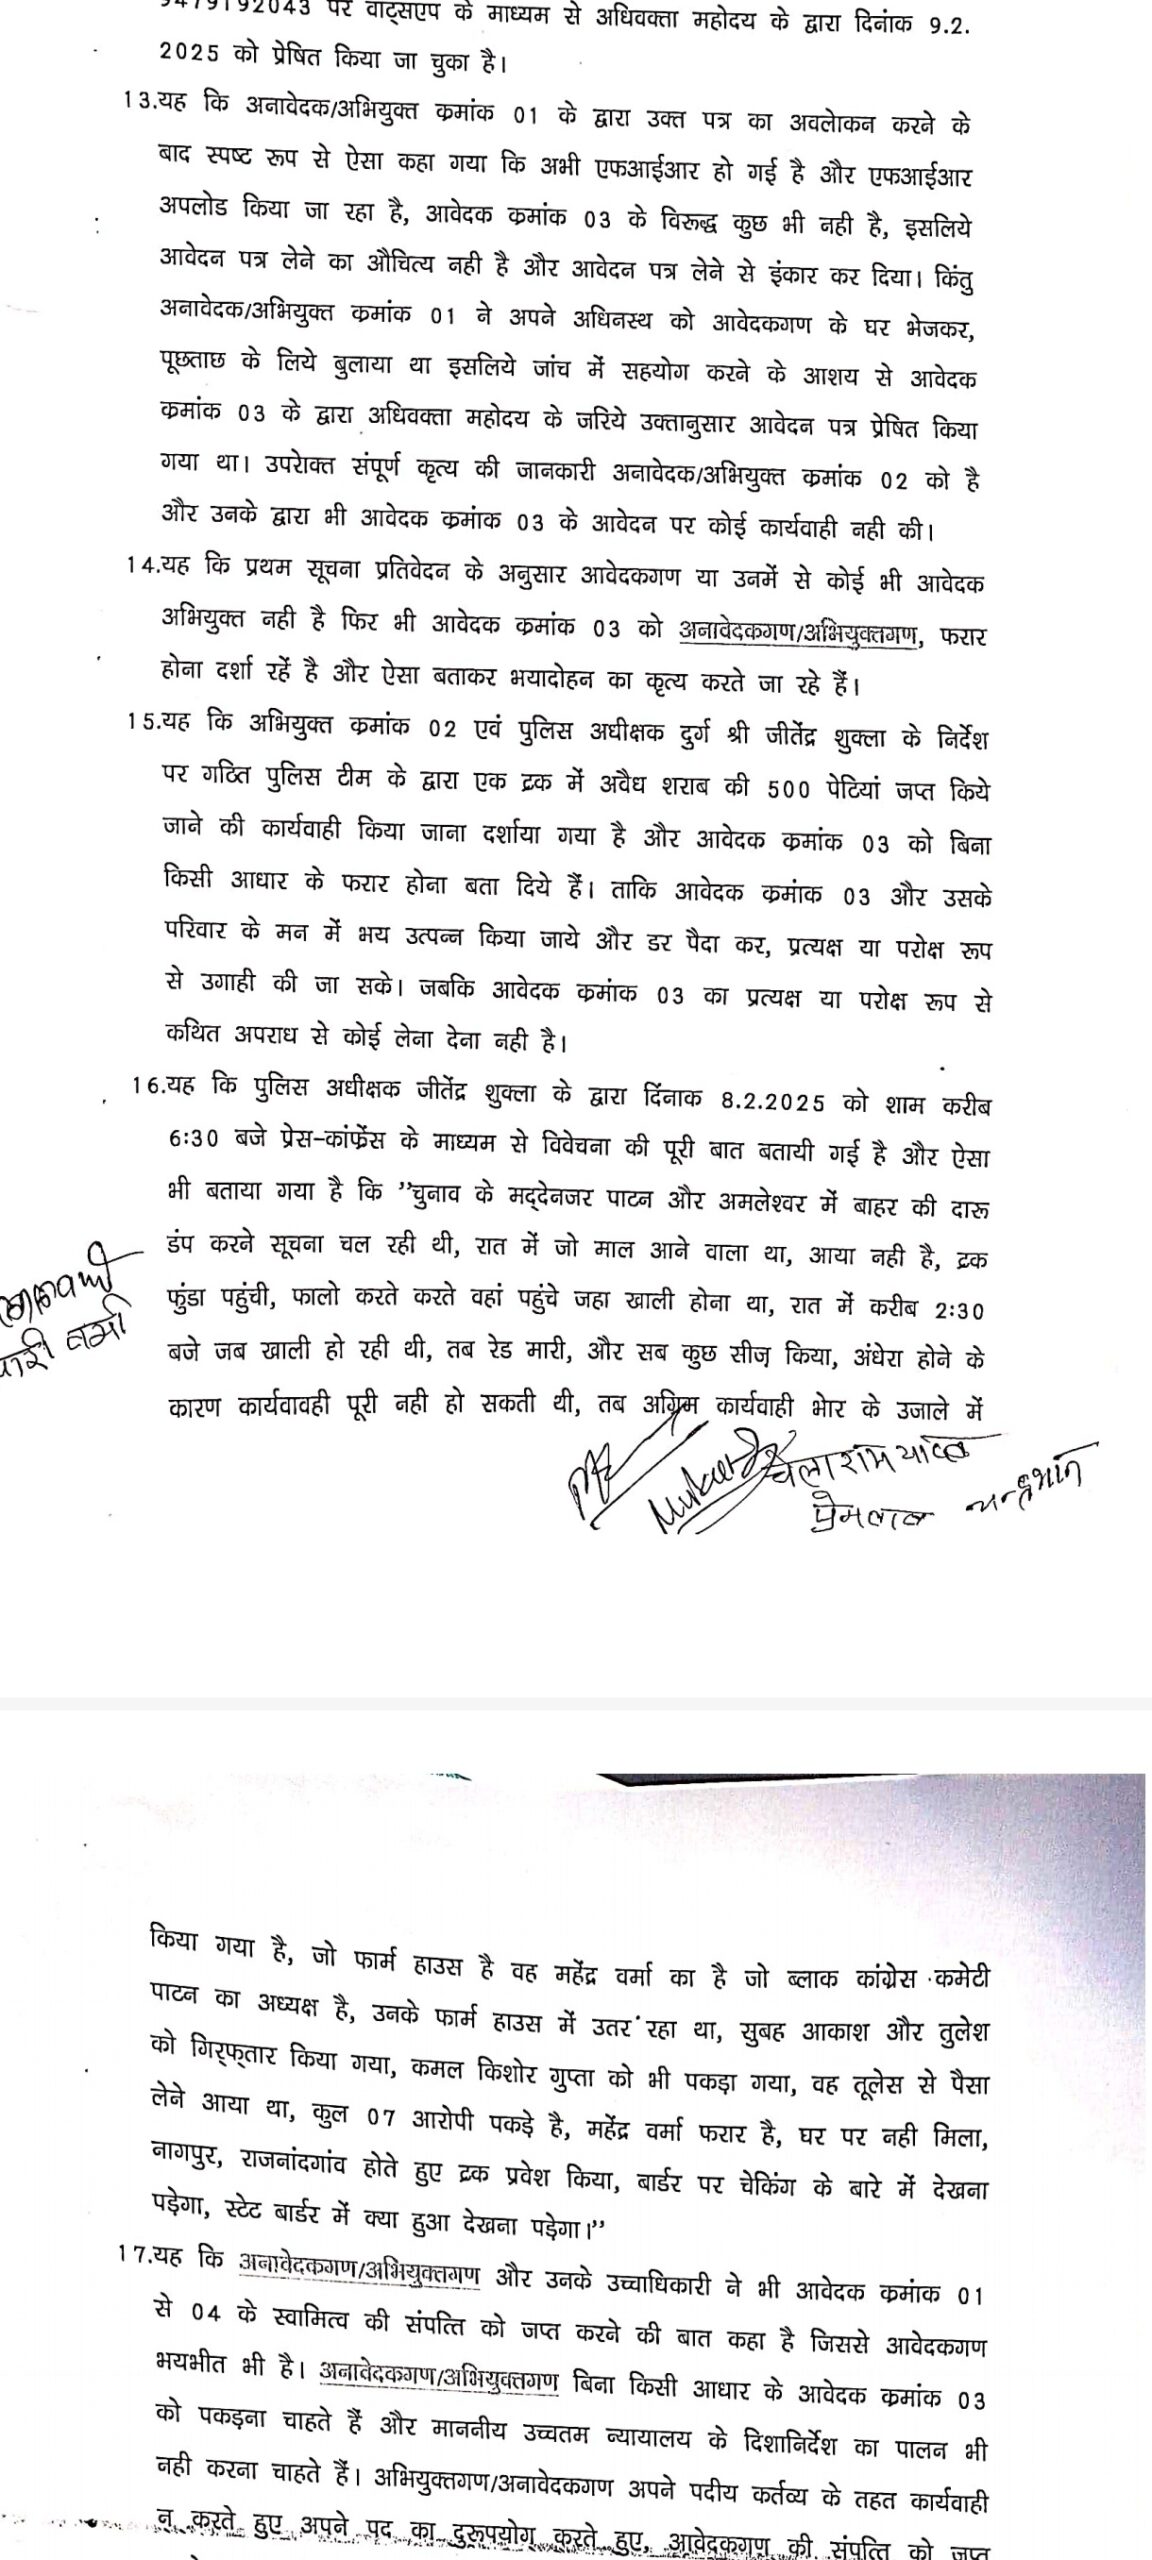 9479192043 पर वाट्सएप के माध्यम से अधिवक्ता महोदय के द्वारा दिनांक 9.2.
2025 को प्रेषित किया जा चुका है।
13.यह कि अनावेदक/अभियुक्त क्रमांक 01 के द्वारा उक्त पत्र का अवलोकन करने के
बाद स्पष्ट रूप से ऐसा कहा गया कि अभी एफआईआर हो गई है और एफआईआर
अपलोड किया जा रहा है, आवेदक क्रमांक 03 के विरूद्ध कुछ भी नही है, इसलिये
आवेदन पत्र लेने का औचित्य नही है और आवेदन पत्र लेने से इंकार कर दिया। किंतु
अनावेदक/अभियुक्त क्रमांक 01 ने अपने अधिनस्थ को आवेदकगण के घर भेजकर,
पूछताछ के लिये बुलाया था इसलिये जांच में सहयोग करने के आशय से आवेदक
क्रमांक 03 के द्वारा अधिवक्ता महोदय के जरिये उक्तानुसार आवेदन पत्र प्रेषित किया
गया था। उपरोक्त संपूर्ण कृत्य की जानकारी अनावेदक/अभियुक्त क्रमांक 02 को है
और उनके द्वारा भी आवेदक क्रमांक 03 के आवेदन पर कोई कार्यवाही नही की।
14.यह कि प्रथम सूचना प्रतिवेदन के अनुसार आवेदकगण या उनमें से कोई भी आवेदक
अभियुक्त नही है फिर भी आवेदक क्रमांक 03 को अनावेदकगण/अभियुक्तगण, फरार
होना दर्शा रहें है और ऐसा बताकर भयादोहन का कृत्य करते जा रहे हैं।
15.यह कि अभियुक्त क्रमांक 02 एवं पुलिस अधीक्षक दुर्ग श्री जीतेंद्र शुक्ला के निर्देश
पर गठित पुलिस टीम के द्वारा एक ट्रक में अवैध शराब की 500 पेटियां जप्त किये
जाने की कार्यवाही किया जाना दर्शाया गया है और आवेदक क्रमांक 03 को बिना
किसी आधार के फरार होना बता दिये हैं। ताकि आवेदक क्रमांक 03 और उसके
परिवार के मन में भय उत्पन्न किया जाये और डर पैदा कर, प्रत्यक्ष या परोक्ष रूप
से उगाही की जा सके। जबकि आवेदक क्रमांक 03 का प्रत्यक्ष या परोक्ष रूप से
कथित अपराध से कोई लेना देना नही है।
16.यह कि पुलिस अधीक्षक जीतेंद्र शुक्ला के द्वारा दिंनाक 8.2.2025 को शाम करीब
6:30 बजे प्रेस-कांफ्रेंस के माध्यम से विवेचना की पूरी बात बतायी गई है और ऐसा
भी बताया गया है कि ’’चुनाव के मद्देनजर पाटन और अमलेश्वर में बाहर की दारू
डंप करने सूचना चल रही थी, रात में जो माल आने वाला था, आया नही है, ट्रक
फुंडा पहुंची, फालो करते करते वहां पहुंचे जहा खाली होना था, रात में करीब 2:30
बजे जब खाली हो रही थी, तब रेड मारी, और सब कुछ सीज़ किया, अंधेरा होने के
कारण कार्यवावही पूरी नही हो सकती थी, तब अग्रिम कार्यवाही भोर के उजाले में
चेलाराम यादव
प्रेमलाल
किया गया है, जो फार्म हाउस है वह महेंद्र वर्मा का है जो ब्लाक कांग्रेस कमेटी
पाटन का अध्यक्ष है, उनके फार्म हाउस में उतर रहा था, सुबह आकाश और तुलेश
को गिर्‌फ्तार किया गया, कमल किशोर गुप्ता को भी पकड़ा गया, वह तूलेस से पैसा
लेने आया था, कुल 07 आरोपी पकड़े है, महेंद्र वर्मा फरार है, घर पर नही मिला,
नागपुर, राजनांदगांव होते हुए ट्रक प्रवेश किया, बार्डर पर चेकिंग के बारे में देखना
पड़ेगा, स्टेट बार्डर में क्या हुआ देखना पड़ेगा।’’
17.यह कि अनावेदकगण/अभियुक्तगण और उनके उच्चाधिकारी ने भी आवेदक क्रमांक 01
से 04 के स्वामित्व की संपत्ति को जप्त करने की बात कहा है जिससे आवेदकगण
भयभीत भी है। अनावेदकगण/अभियुक्तगण बिना किसी आधार के आवेदक क्रमांक 03
को पकड़ना चाहते हैं और माननीय उच्चतम न्यायालय के दिशानिर्देश का पालन भी
नही करना चाहते हैं। अभियुक्तगण/अनावेदकगण अपने पदीय कर्तव्य के तहत कार्यवाही
न करते हुए अपने पद का दुरूपयोग करते हुए, आवेदकगण की संपत्ति को जप्त